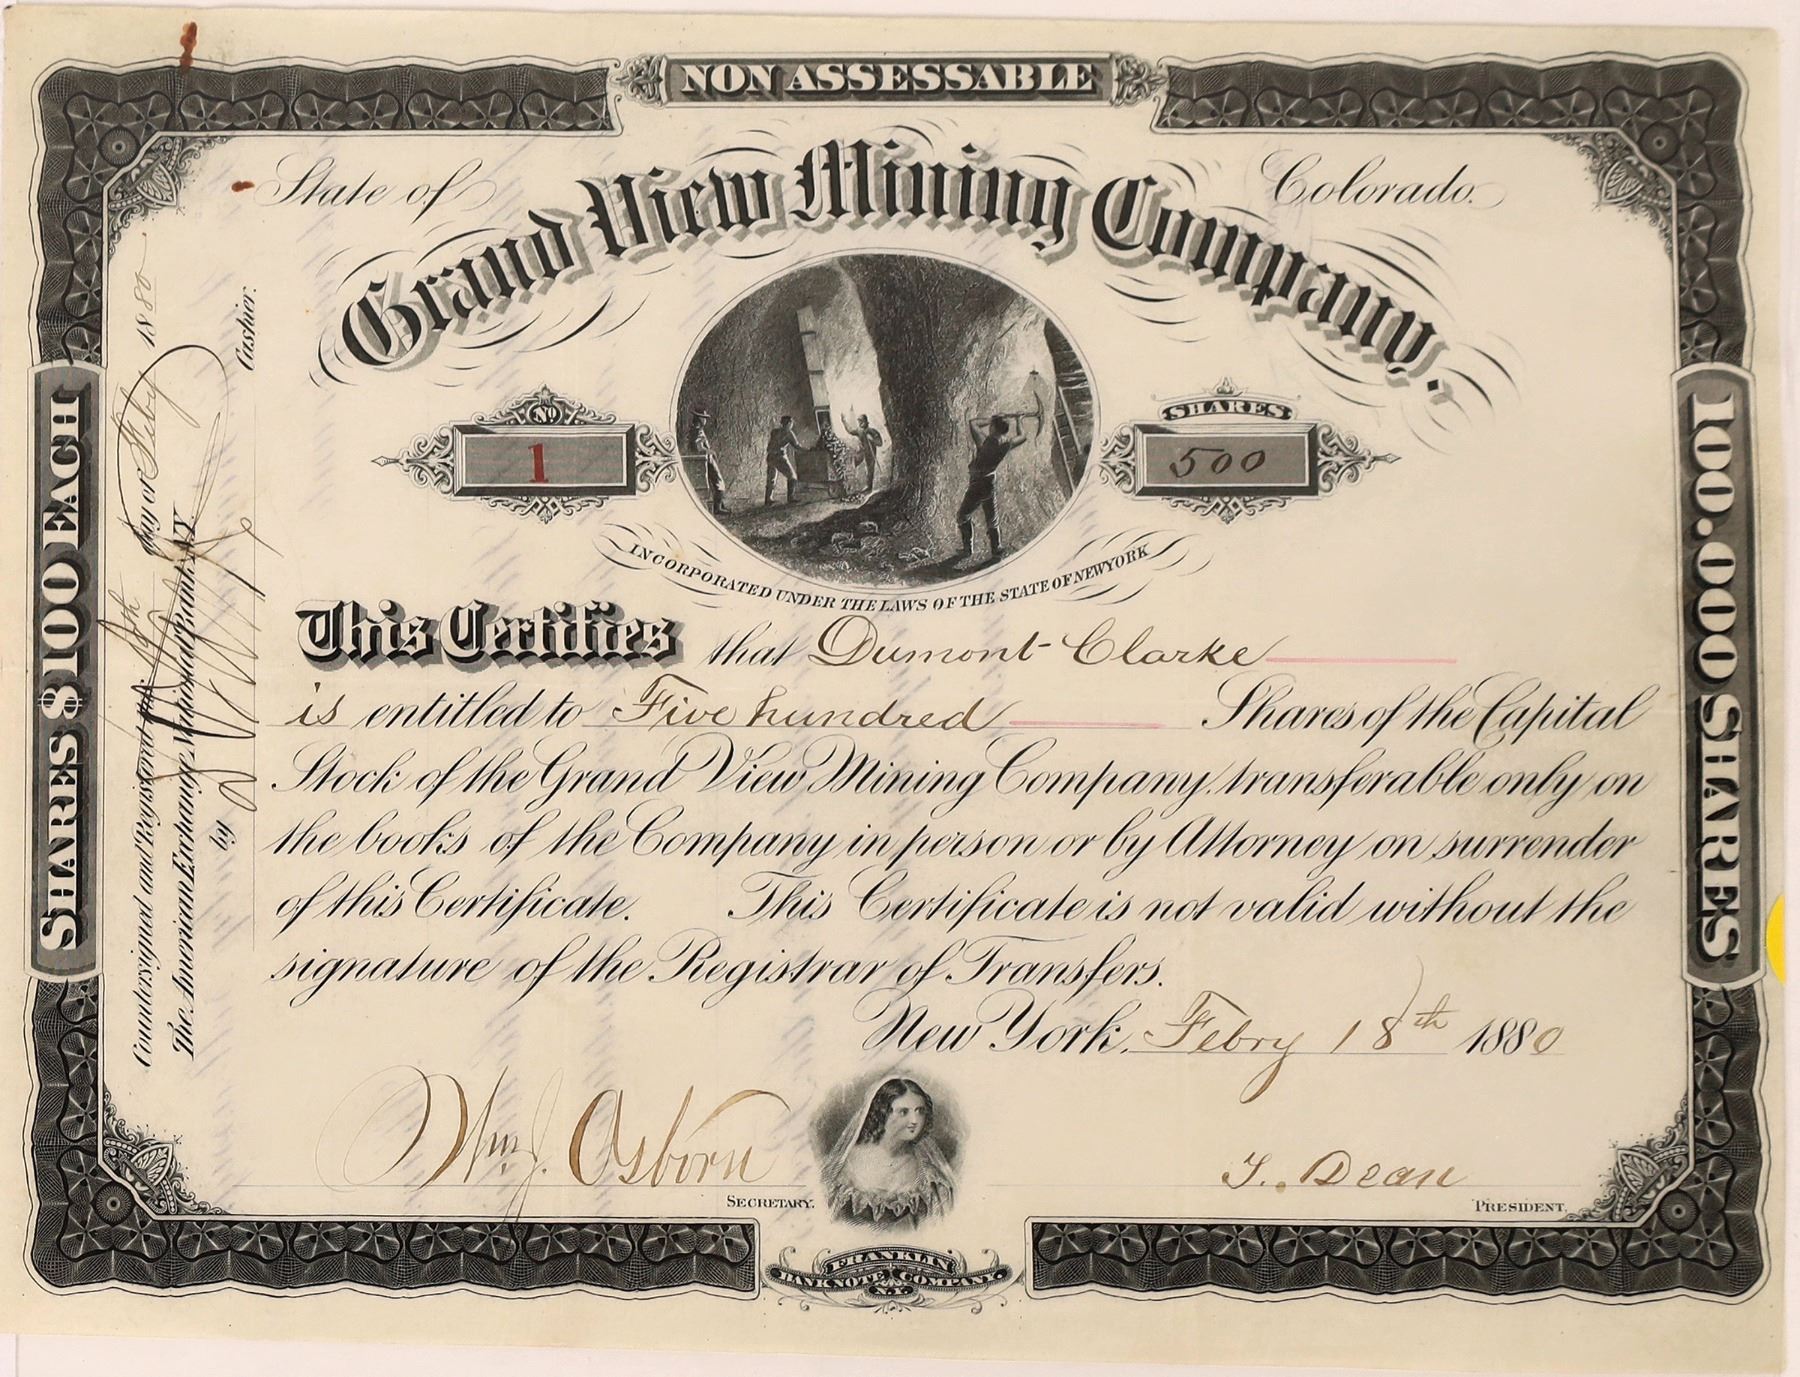 NON ASSESSABLE
State of
Colorado.
Grand View Mining Company.
No
1
SHARES
500
INCORPORATED UNDER THE LAWS OF THE STATE OF NEW YORK
This Certifies that Dumont Clarke
is entitled to Five hundred Shares of the Capital
Stock of the Grand View Mining Company, transferable only on
the books of the Company in person or by Attorney on surrender
of this Certificate. This Certificate is not valid without the
signature of the Registrar of Transfers.
New York, Febry 18th 1880
Wm J. Osborn
SECRETARY.
T. Dean
PRESIDENT.
FRANKLIN
BANK NOTE COMPANY.
N.Y.
SHARES $100 EACH
100.000 SHARES
Countersigned and Registered this 18th day of Feby 1880
The American Exchange National Bank N.Y.
by
Cashier.